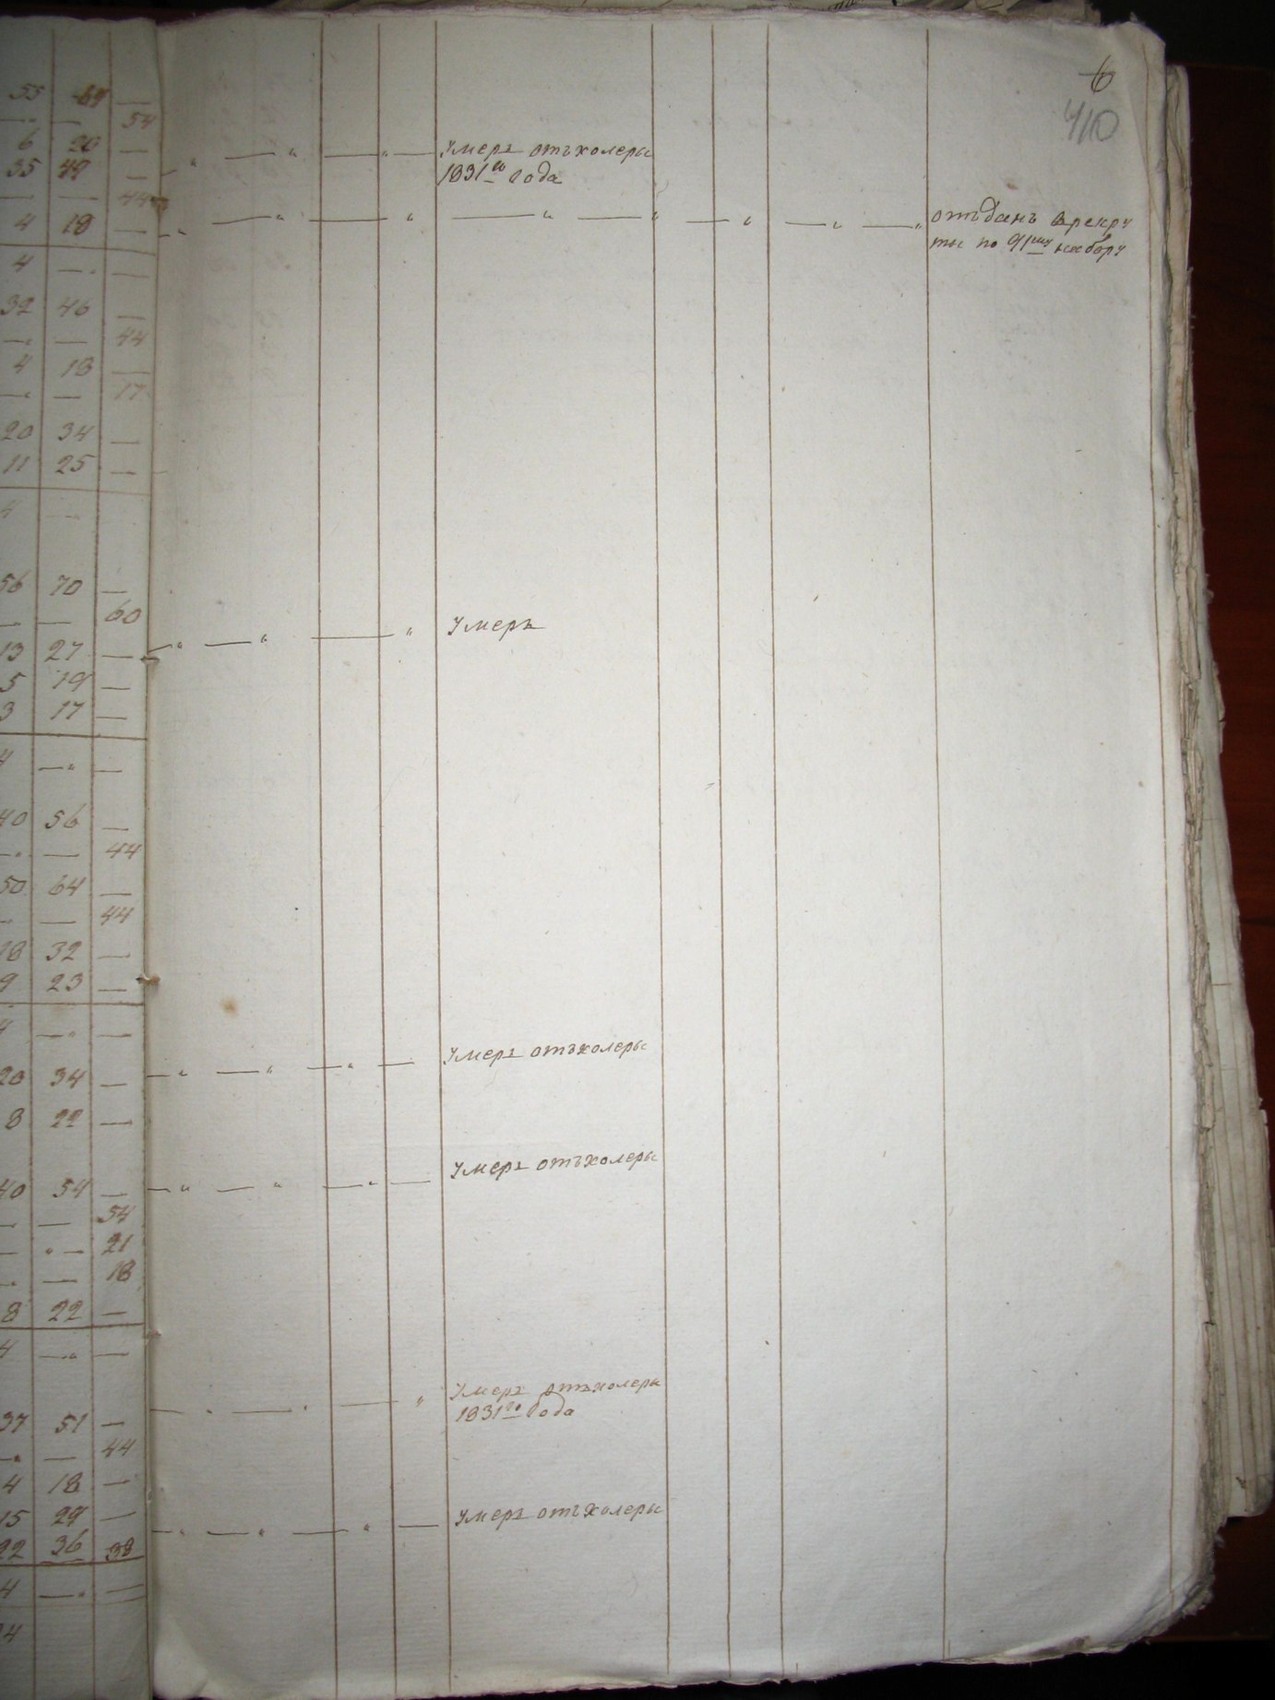 6
410
55 69 —
— 54
6 20 —
35 49 —
— — 44
4 18 —
4 — —
32 46 —
— — 44
4 18 —
— — 17
20 34 —
11 25 —
4 —
56 70 —
— — 60
13 27 —
5 19 —
3 17 —
4 — —
40 56 —
— — 44
50 64 —
— — 44
18 32 —
9 23 —
4 — —
20 34 —
8 22 —
40 54 —
— — 54
— — 21
— — 18
8 22 —
4 — —
37 51 —
— — 44
4 18 —
15 29 —
22 36 38
4 — —
4
Умеръ отъ холеры
1831го года
отъданъ в рекру
ты по 91му набору
Умеръ
Умеръ отъ холеры
Умеръ отъ холеры
Умеръ отъ холеры
1831го года
Умеръ отъ холеры